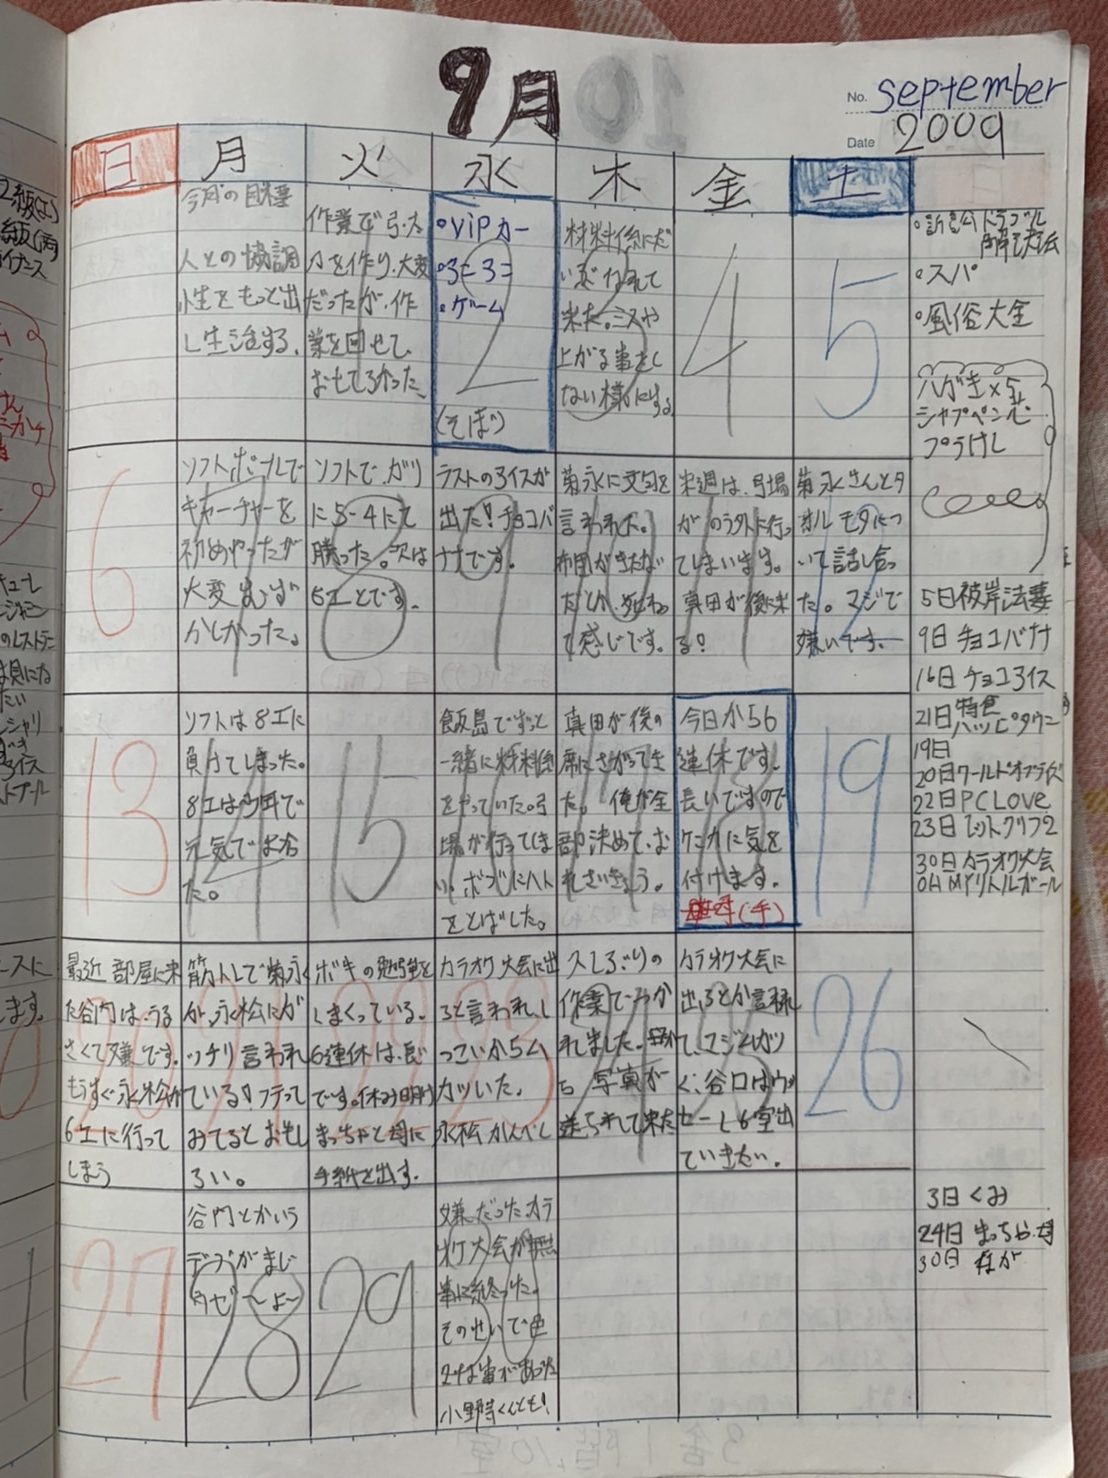 9月
No. September
Date 2009
日 月 火 水 木 金 土
今月の目標
人との協調
性をもっと出
し生活する。
作業で弓.大
だったが.作
業を回せて、
おもてろかった
○VIPカー
○ゲーム
2
(そば)
材料係にだ
いぶなれて
来た。ミスや
上がる事をし
ない様にする
4
5
6
ソフトボールで
キャーチャーを
初めやったが
大変むず
かしかった。
7
ソフトで.ガリ
に5-4にて
勝った。次は
8
ラストのアイスが
出た!チョコバ
ナナです。
9
菊永に文句を
言われた。
布団がきたない
て感じです。
10
来週は、弓場
がのう外に行っ
てしまいます。
真田が後に来
る?
11
菊永さんとタ
いて話し合っ
た。マジで
嫌いです。
12
13
ソフトは8工に
負けてしまった。
8工は少年で
元気でよか
た。
14
15
飯島でずっと
一緒に材料係
をやっていた弓
場が行ってしま
い、ボブにハト
をとばした。
16
真田が後の
席にさがってき
た。俺が全
部決めて、お
れさいきょう。
17
今日から6
連休です。
長いですので
ケンカに気を
付けます。
18
19
最近 部屋に来
た谷内は.うる
さくて嫌です。
もうすぐ永松が
6工に行って
しまう
20
筋トレで菊永
が、永松にガ
ッチリ言われ
ている!フテって
みてるとおもし
ろい。
21
ボキの勉強を
しまくっている。
6連休は、長い
です。休み明け
まっちゃと母に
手紙を出す。
22
カラオケ大会に出
ろと言われ、し
つこいからム
カツいた。
永松かんべし
23
久しぶりの
作業でつか
れました。
写真が
送られて来た
24
カラオケ大会に
出ろとか言われ
て、マジムカツ
く、谷口はウッ
セーし6室出
ていきたい。
25
26
27
谷門とかいう
デブがまじ
ウゼ〜よ〜
28
29
嫌だったカラ
オケ大会が無
事に終った。
そのせいで色
30
○訴訟トラブル
解決法
○スパ
○風俗大全
ハガキ×5
シャプペン芯
プラけし
5日彼岸法要
9日 チョコバナナ
16日 チョコアイス
21日 特食
ハッピータウン
19日
20日ワールドオブライズ
22日PCLOVe
23日レットクリフ2
30日カラオケ大会
OH MYリトルガール
3日 くみ
24日 まっちゃ.母
30日